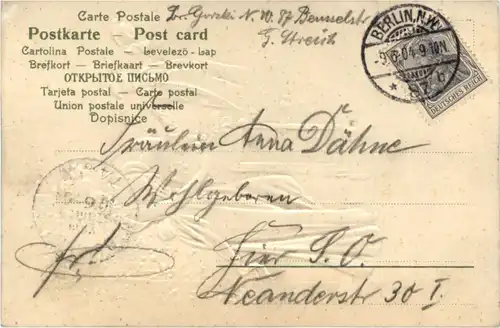 Carte Postale
Gorski N. W. 87
Postkarte - Post card
Cartolina Postale - Levelező-Lap
Brefkort - Briefkaart - Brevkort
ОТКРЫТОЕ ПИСЬМО
Tarjeta postal - Carte postal
Union postale universelle
Dopisnice
BERLIN, N.W.
DEUTSCHES REICH
Fräulein Anna Dähne
Wohlgeboren
Hier S. O.
Neanderstr 30 I.